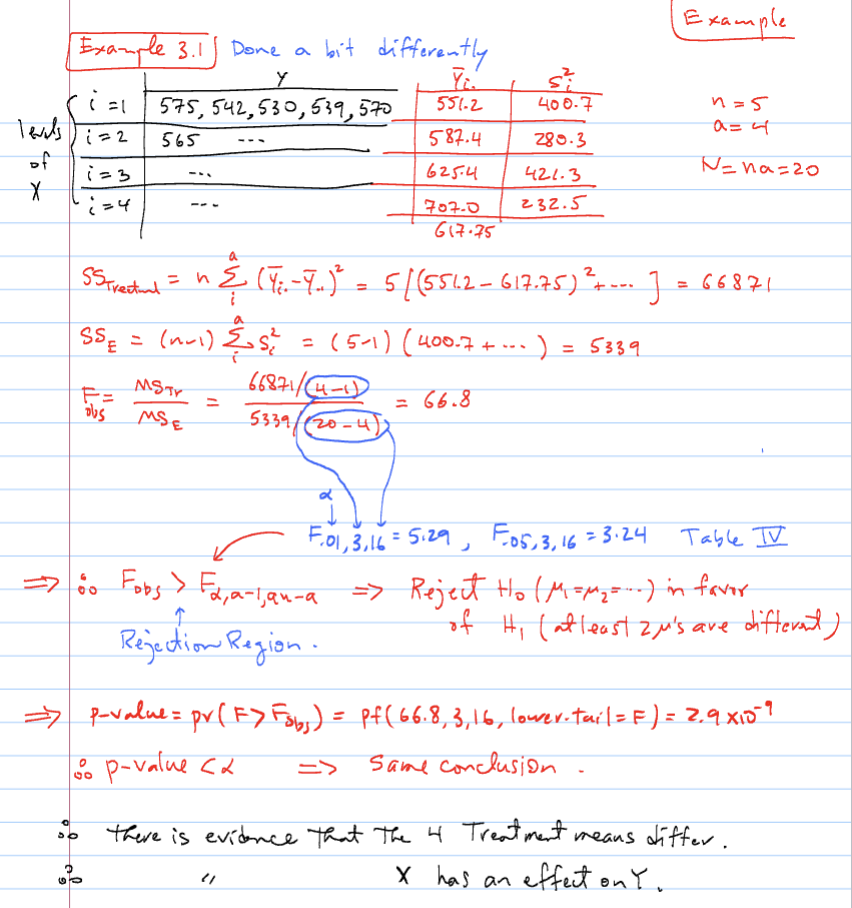 Example
Example 3.1 Done a bit differently
Y Ȳi. Si²
i=1 575, 542, 530, 539, 570 551.2 400.7 n = 5
levels of X
i=2 565 --- 587.4 280.3 a = 4
i=3 --- 625.4 421.3 N = na = 20
i=4 --- 707.0 232.5
617.75
SS_Treatment = n Σ_i^a (Ȳi. - Ȳ..)² = 5 [(551.2 - 617.75)² + ---- ] = 66871
SS_E = (n-1) Σ_i^a Si² = (5-1) (400.7 + ---- ) = 5339
F_obs = MS_Tr / MS_E = 66871/(4-1) / 5339/(20-4) = 66.8
α
F.01, 3, 16 = 5.29 , F.05, 3, 16 = 3.24 Table IV
⇒ ∴ F_obs > F_α, a-1, an-a ⇒ Reject H₀ (μ₁=μ₂=---) in favor
of H₁ (at least 2 μ's are different)
Rejection Region.
⇒ p-value = pr(F > F_obs) = pf(66.8, 3, 16, lower.tail = F) = 2.9 x10⁻⁹
∴ p-value < α ⇒ Same conclusion.
∴ there is evidence that the 4 Treatment means differ.
∴ " X has an effect on Y.